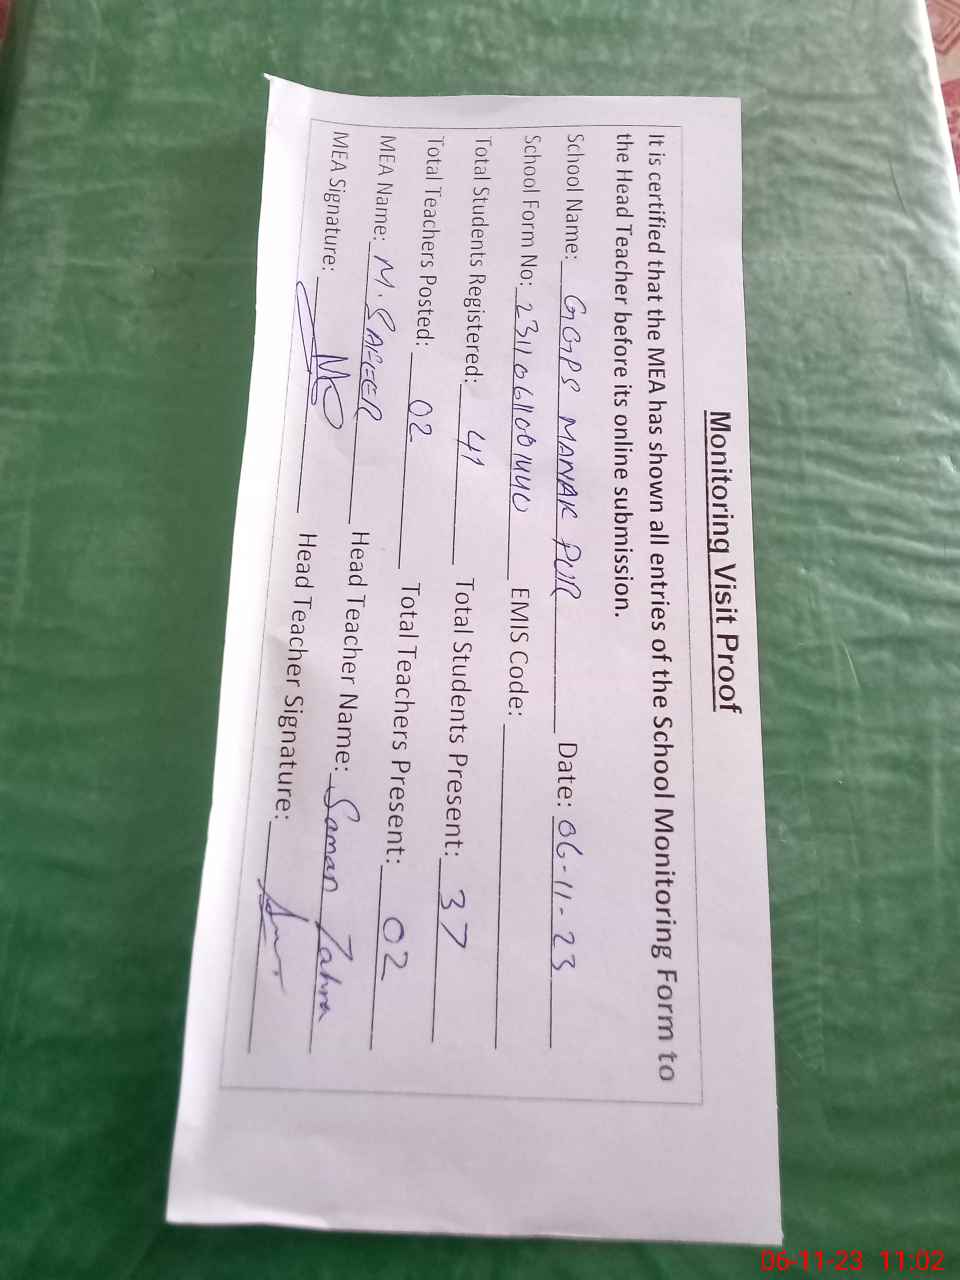 Monitoring Visit Proof
It is certified that the MEA has shown all entries of the School Monitoring Form to
the Head Teacher before its online submission.
School Name: GGPS MANAK PUR Date: 06-11-23
School Form No: 2311061001440 EMIS Code:
Total Students Registered: 41 Total Students Present: 37
Total Teachers Posted: 02 Total Teachers Present: 02
MEA Name: M. SAFEER Head Teacher Name: Saman Zahra
MEA Signature: Head Teacher Signature:
06-11-23 11:02